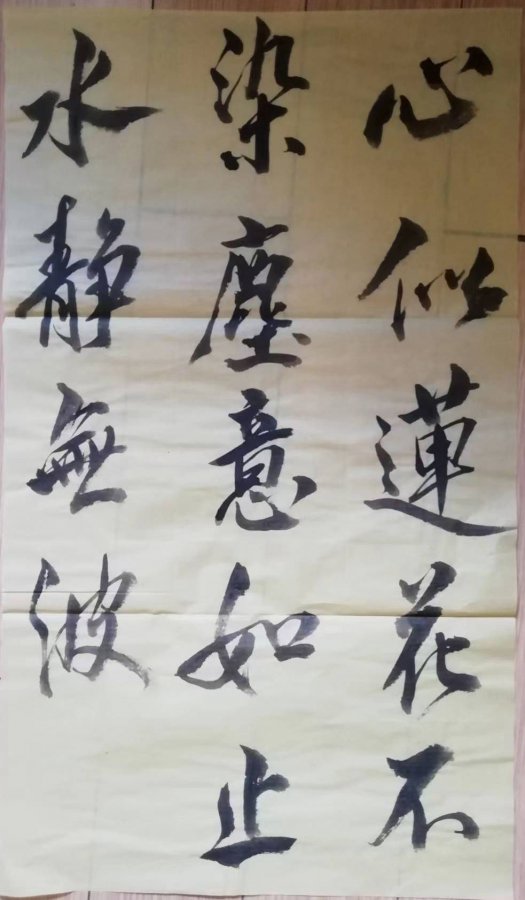 心似蓮花不
染塵意如止
水靜無波